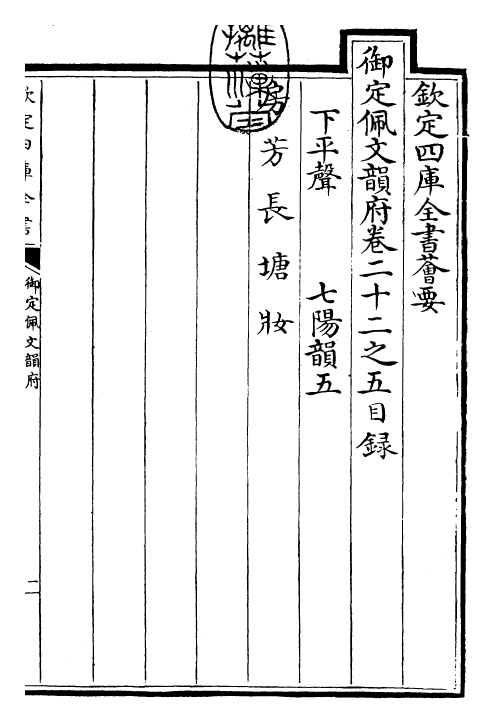 欽定四庫全書薈要
御定佩文韻府卷二十二之五目録
下平聲　七陽韻五
房芳長塘妝
欽定四庫全書
御定佩文韻府
二